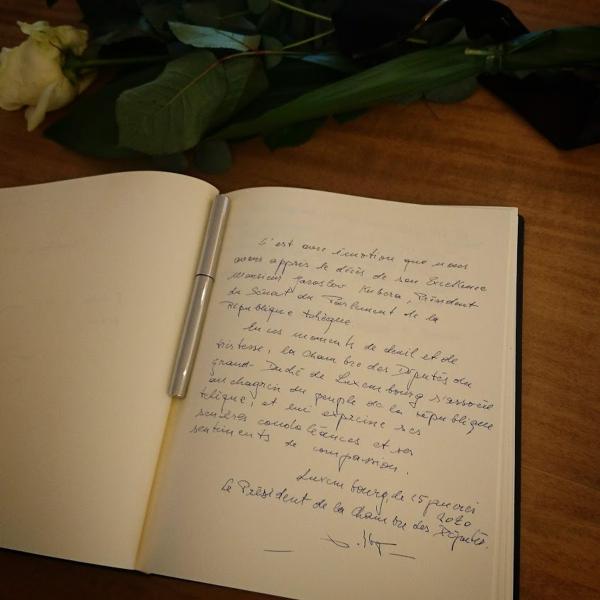 C'est avec émotion que nous
avons appris le décès de son Excellence
Monsieur Jaroslav Kubera, Président
du Sénat du Parlement de la
République tchèque.
En ces moments de deuil et de
tristesse, la Chambre des Députés du
Grand-Duché de Luxembourg s'associe
au chagrin du peuple de la République
tchèque, et lui exprime ses
sincères condoléances et ses
sentiments de compassion.
Luxembourg, le 25 janvier
2020
Le Président de la Chambre des Députés.